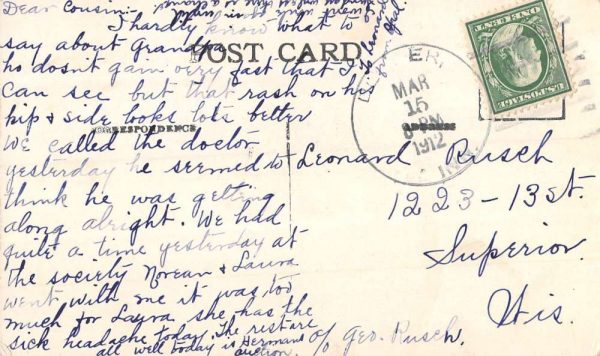 Dear Cousin:-
I hardly know what to
say about Grandpa
he dosn't gain very fast that I
can see but that rash on his
hip & side looks lots better
We called the doctor
yesterday he seemed to
think he was getting
along alright. We had
quite a time yesterday at
the society Norean & Laura
went with me it was too
much for Laura she has the
sick headache today. The rest are
all well today is Hermans
auction.
To Leonard
from
POST CARD
CORRESPONDENCE
ADDRESS
MAR
15
PM
1912
U.S. POSTAGE
ONE CENT
Leonard Rusch
1223-13 St.
Superior
Wis.
c/o Geo. Rusch.